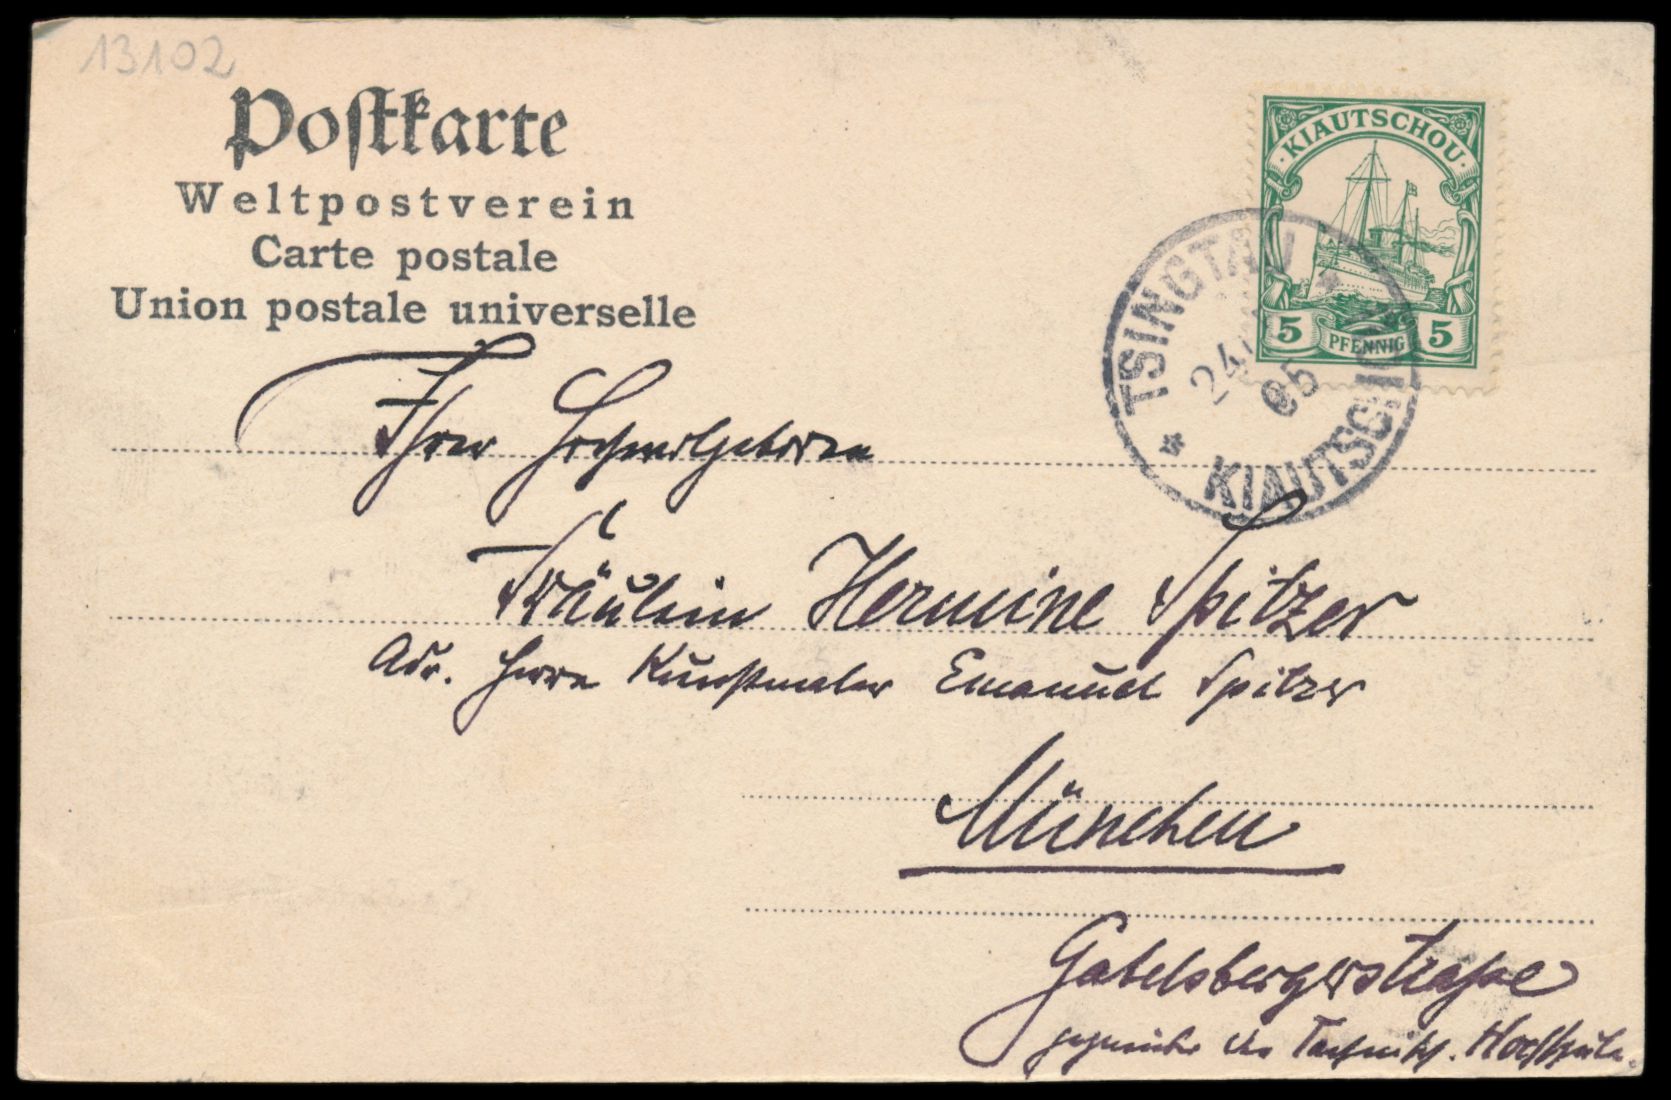 13102
Postkarte
Weltpostverein
Carte postale
Union postale universelle
KIAUTSCHOU
5 PFENNIG 5
TSINGTAU
24
05
* KIAUTSCHOU
Ihrer Hochwolgeboren
Fräulein Hermine Spitzer
Adr. Herrn Kunstmaler Emanuel Spitzer
München
Gabelsbergerstraße
gegenüber der Technisch. Hochschule.